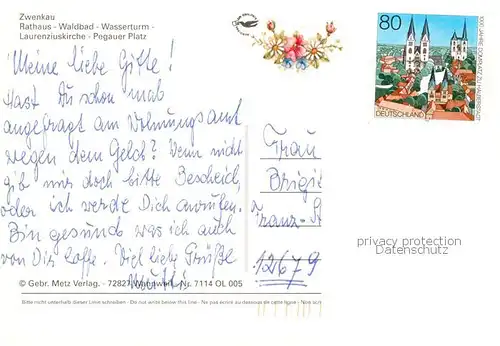 Zwenkau
Rathaus - Waldbad - Wasserturm -
Laurenziuskirche - Pegauer Platz
Meine liebe Gitte!
Hast Du schon mal
angefragt am Wohnungsamt
wegen dem Geld? Wenn nicht
gib mir doch bitte Bescheid,
oder ich werde Dich anrufen.
Bin gesund was ich auch
von Dir hoffe. Viel liebe Grüße
Mutti
80
DEUTSCHLAND
1000 JAHRE DOMPLATZ ZU HALBERSTADT
Frau
Brigi
Franz-St
12679
privacy protection
Datenschutz
© Gebr. Metz Verlag. - 72827 Wannweil - Nr. 7114 OL 005
Bitte nicht unterhalb dieser Linie schreiben - Do not write below this line - Ne pas écrire au-dessous de cette ligne - Non scriv